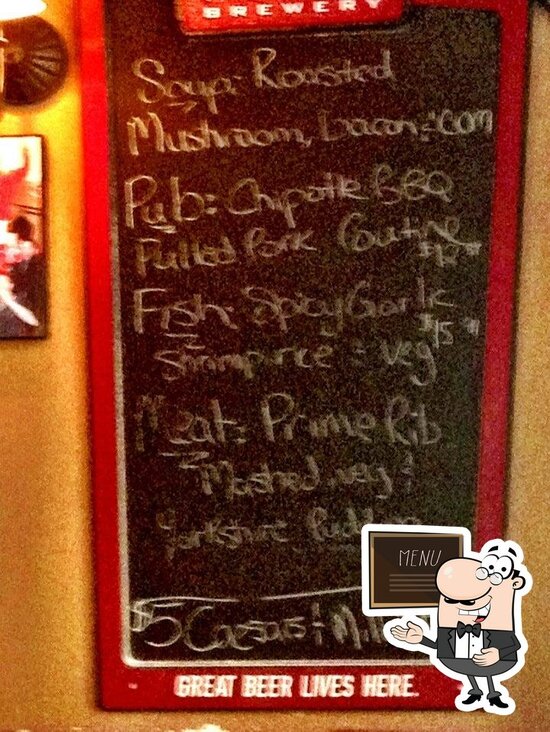 BREWERY
Soup: Roasted
Mushroom, bacon & corn
Pub: Chipotle BBQ
Pulled Pork Poutine
Fish: Spicy Garlic
$15
Shrimp, rice & veg
Meat: Prime Rib
Mashed, veg &
Yorkshire Pudding
$5 Caesars &
GREAT BEER LIVES HERE.
MENU